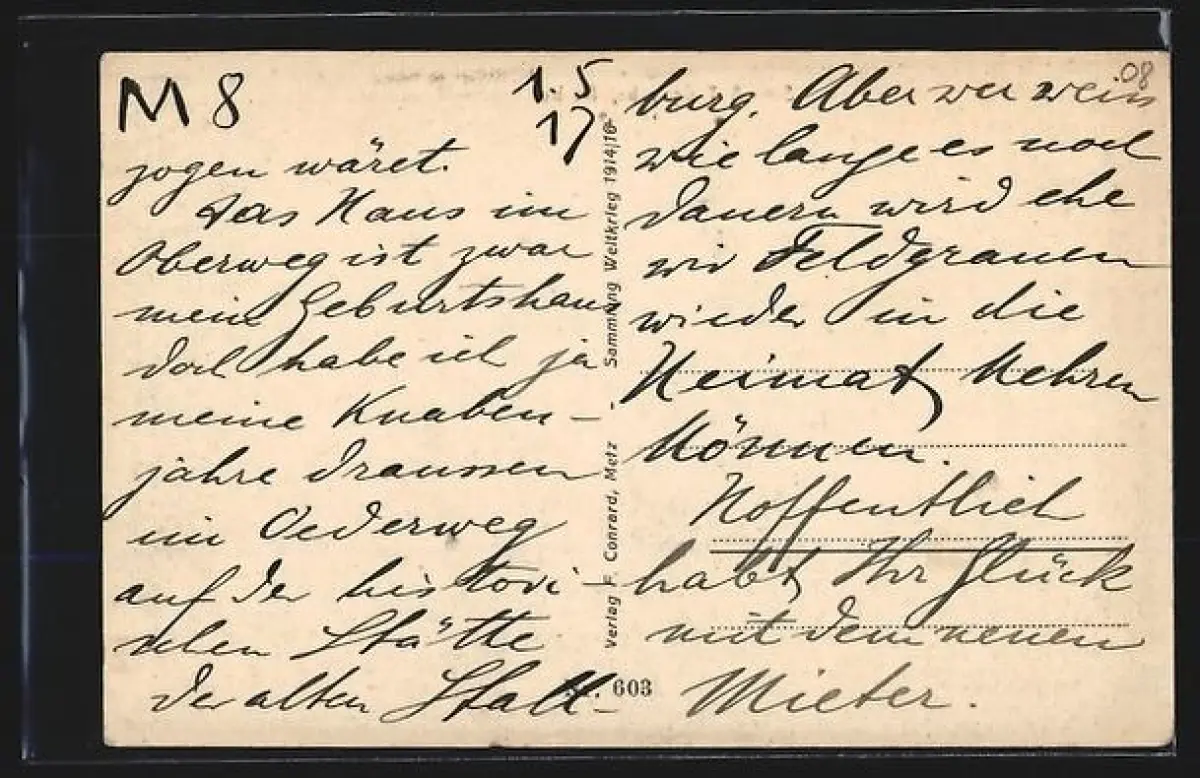 M 8
1. 5
17
zogen wäret.
Das Haus im
Oberweg ist zwar
mein Geburtshaus
doch habe ich ja
meine Knaben-
jahre draussen
im Oederweg
auf der histori-
schen Stätte
der alten Stall-
Sammlung Weltkrieg 1914|16
Verlag F. Conrard, Metz
603
08
burg. Aber wer weiss
wie lange es noch
dauern wird ehe
wir Feldgrauen
wieder in die
Heimat kehren
können.
Hoffentlich
habt Ihr Glück
mit dem neuen
Mieter.